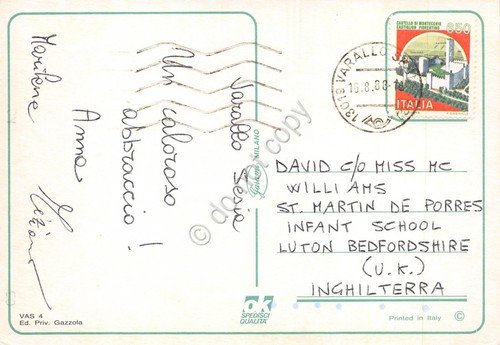 Varallo Sesia
Un caloroso
abbraccio!
Marilena Anna
CASTELLO DI MONTECCHIO
CASTIGLION FIORENTINO
650
ITALIA
13019 VARALLO
DAVID C/O MISS MC
WILLIAMS
ST. MARTIN DE PORRES
INFANT SCHOOL
LUTON BEDFORDSHIRE
(U.K.)
INGHILTERRA
MILANO
do not copy
VAS 4
Ed. Priv. Gazzola
ok
SPEDISCI
QUALITÀ
Printed in Italy ©